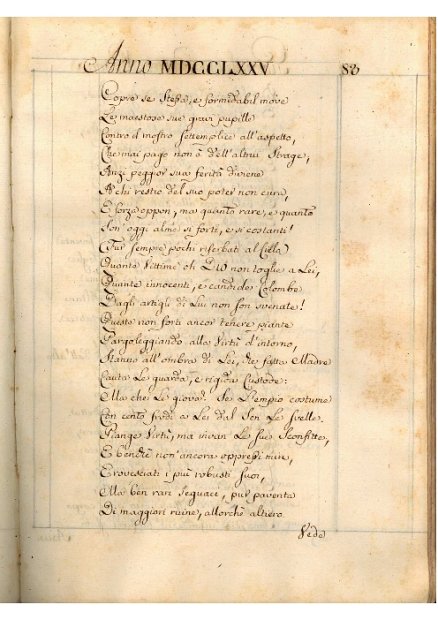 Anno MDCCLXXV 83
Copre se stessa, e formidabil move
Le maestose sue gravi pupille
Contro il mostro settemplice all'aspetto,
Che mai pago non è dell'altrui strage,
Anzi peggior sua ferità diviene
A chi del suo poter non cura,
E forza oppon, ma quanto rare, e quanto
Son oggi alme sì forti, e sì costanti!
Pur sempre pochi al
Quante Vittime oh Dio non toglie a Lei,
Quante innocenti, e candide Colombe
Dagli artigli di Lui non son svenate!
Queste non forti ancor tenere piante
Pargoleggiando alla Virtù d'intorno,
Stanno all'ombra di Lei, che fatta Madre
Cauta Le guarda, e rigida Custode:
Ma che Le giova? Se l'empio costume
Con cento frodi a Lei dal Sen Le svelle.
Piange Virtù, ma vivan Le sue Sconfitte,
E benchè non ancora oppressi
E rovesciati i più robusti suoi,
Ma ben rari seguaci, pur paventa
Di maggiori ruine, allorchè altiero
Vede